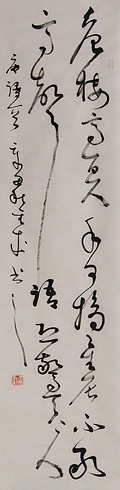 危樓高百尺手可摘星辰不敢
高聲語恐驚天上人
唐詩一首
書